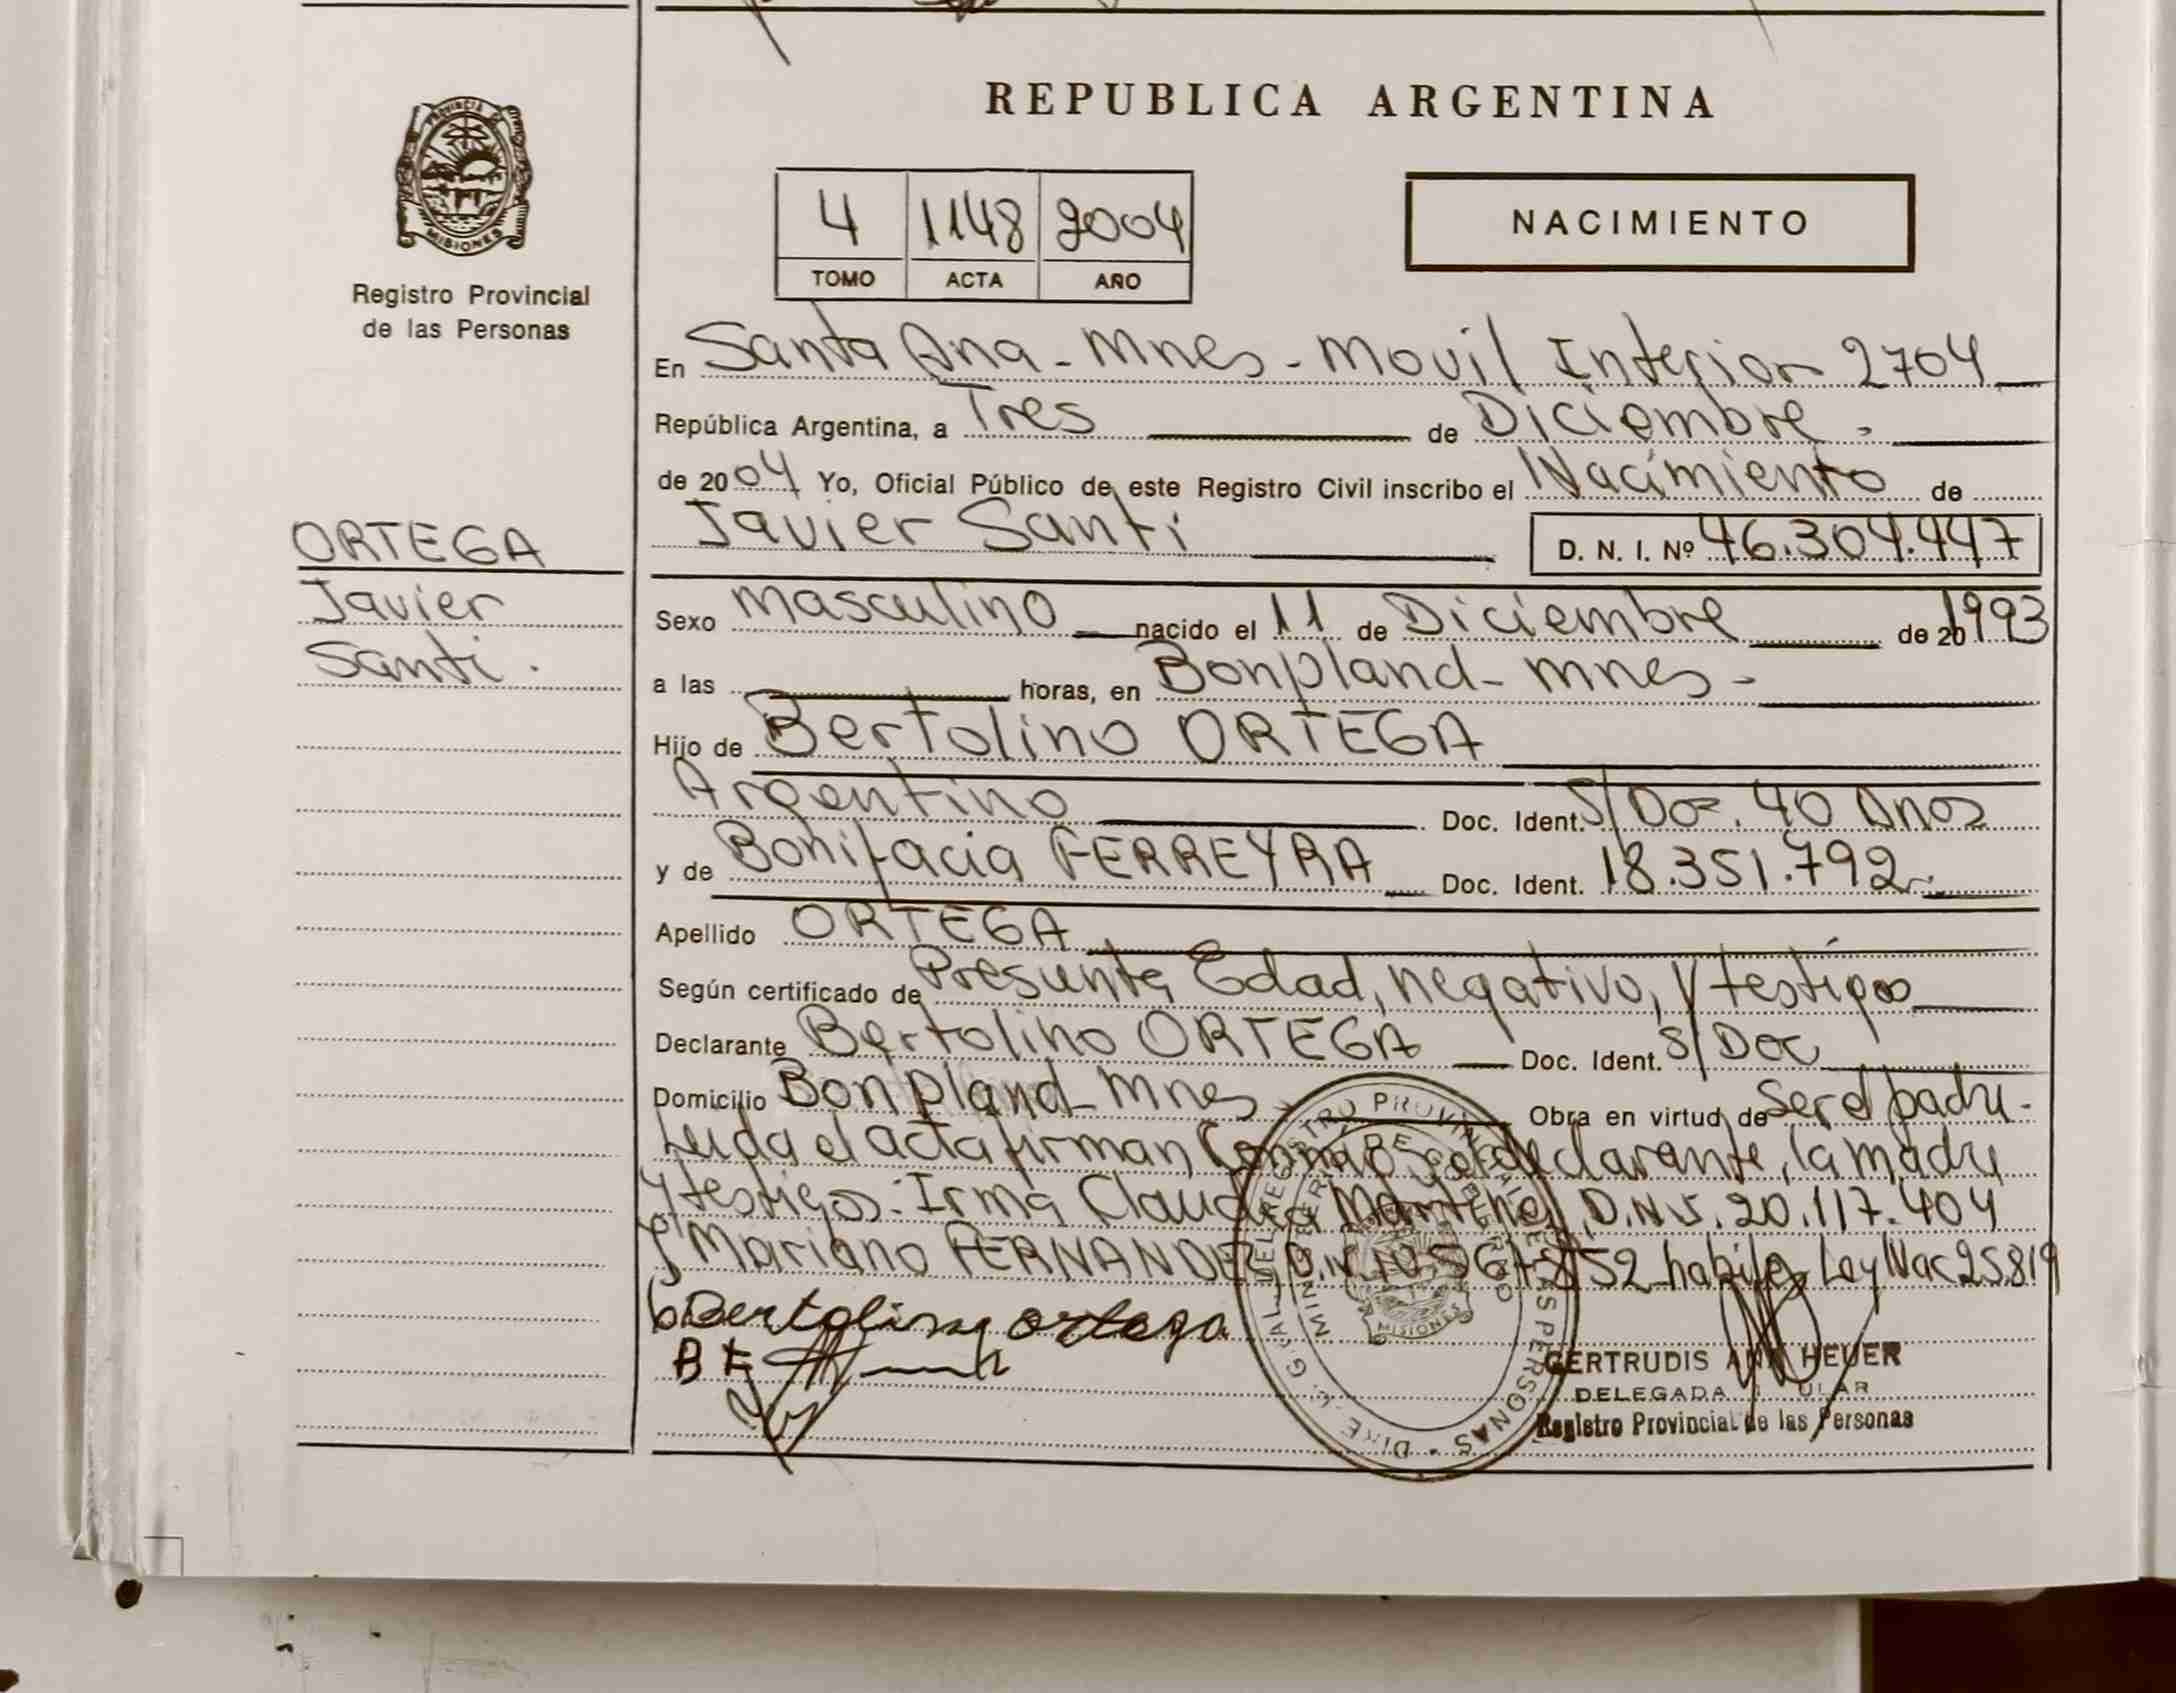 PROVINCIA DE
MISIONES
Registro Provincial
de las Personas
ORTEGA
Javier
Santi.
REPUBLICA ARGENTINA
4 1148 2004
TOMO ACTA AÑO
NACIMIENTO
En Santa Ana - Mnes - Movil Interior 2704
República Argentina, a Tres de Diciembre.
de 2004 Yo, Oficial Público de este Registro Civil inscribo el Nacimiento de
Javier Santi D. N. I. Nº 46.304.447
Sexo Masculino nacido el 11 de Diciembre de 20 1993
a las horas, en Bonpland - Mnes -
Hijo de Bertolino ORTEGA
Argentino Doc. Ident. S/Doc. 40 Años
y de Bonifacia FERREYRA Doc. Ident. 18.351.792
Apellido ORTEGA
Según certificado de Presunta Edad, negativo, y testigos
Declarante Bertolino ORTEGA Doc. Ident. S/Doc
Domicilio Bonpland - Mnes Obra en virtud de Ser el padre.
Leida el acta firman Conmigo el declarante, la madre
y testigos: Irma Claudia D.N.I. 20.117.404
y Mariano FERNANDEZ habilo Ley Nac 25819
Bertolino ortega
B F
GERTRUDIS ANA HEUER
DELEGADA TITULAR
Registro Provincial de las Personas
MISIONES